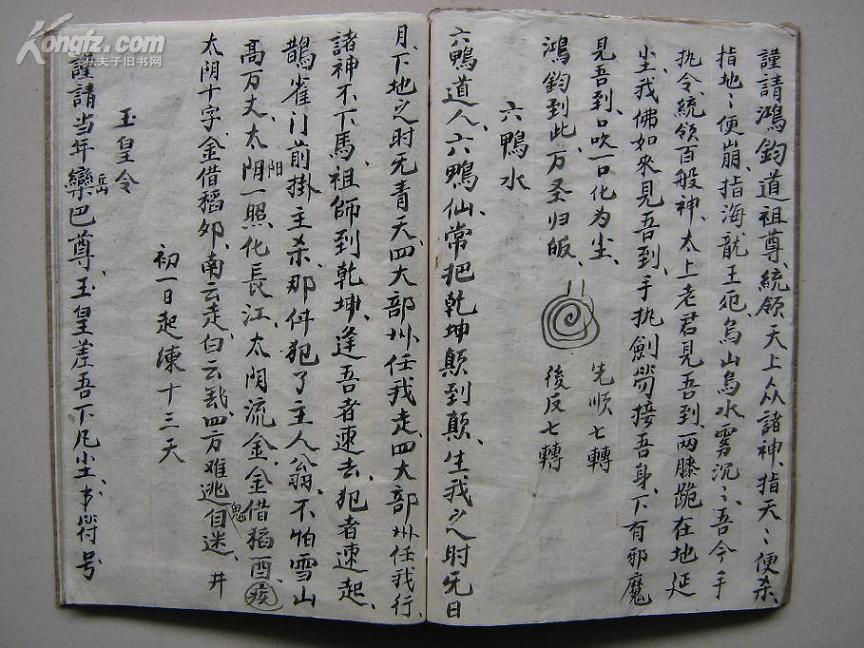 謹請鴻鈞道祖尊、統領天上众諸神、指天〻便杀、
指地〻便崩、指海龍王厄、烏山烏水雾沉〻、吾今手
执令、統领百般神、太上老君見吾到、两膝跪在地延
尘、我佛如來見吾到、手执劍勞接吾身、下有邪魔
見吾到、口吹一口化为尘、
先順七轉
鴻鈞到此、万圣归皈、
後反七轉
六鴨水
六鴨道人、六鴨仙、常把乾坤顛到顛、生我之时无日
月、下地之时无青天、四大部州任我走、四大部州任我行、
諸神不下馬、祖師到乾坤、逢吾者速去、犯者速起、
鵲雀门前掛主杀、那件犯了主人翁、不怕雪山
高万丈、太阳一照化長江、太阴流金、金借稻酉、
太阴十字、金借稻卯、南云走、白云、四方难逃自迷、井
鬼
初一日起煉十三天
玉皇令
謹請当年欒巴尊、玉皇差吾下凡尘、书符号
岳
Kongfz.com
孔夫子旧书网